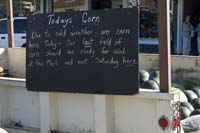 Todays Corn
Due to cold weather - no corn
here Today - Our last field of
corn should be ready for Wed.
at the Mall and next Saturday here.